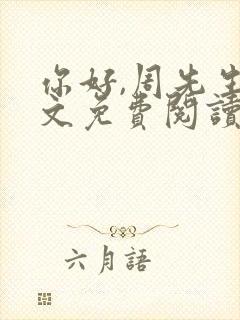 你好,周先生
文免费閱讀
六月語